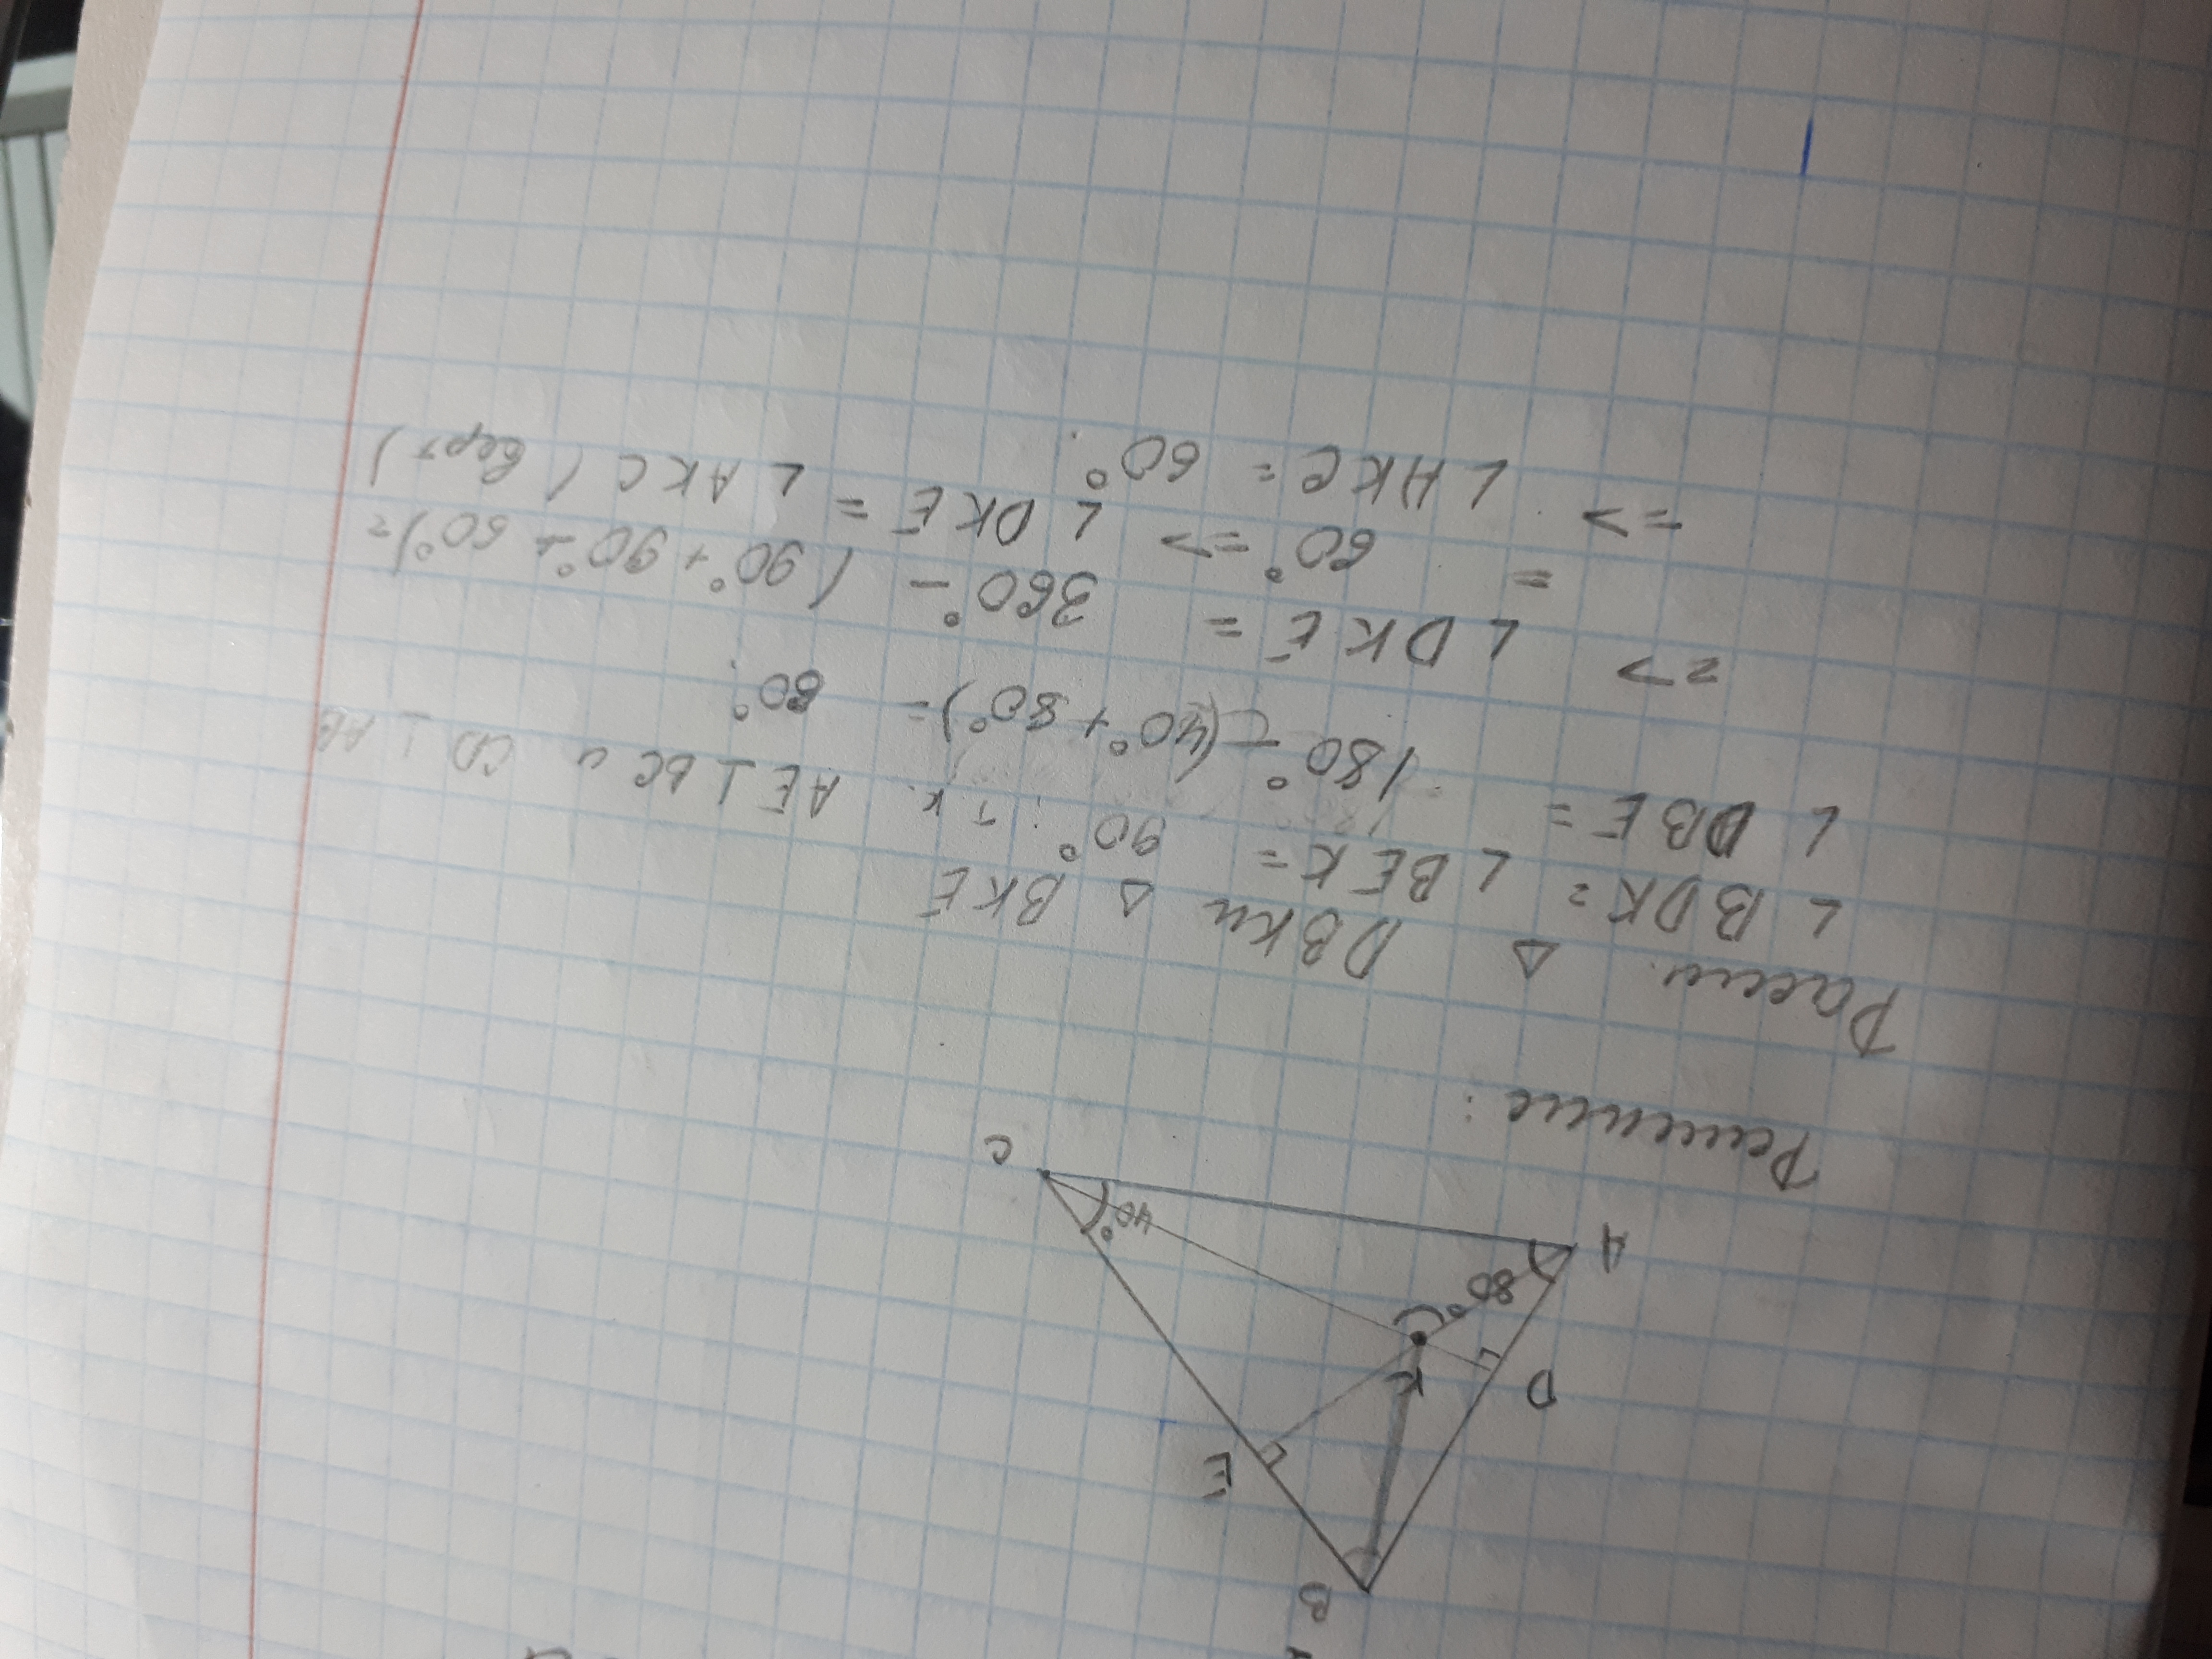 B
E
D
K
80°
A
40°
C
Решение:
Рассм. Δ DBK и Δ BKE
∠ BDK = ∠ BEK = 90° т.к. AE ⊥ BC и CD ⊥ AB
∠ DBE = 180° - (40° + 80°) = 60°.
=> ∠ DKE = 360° - (90° + 90° + 60°) =
= 60° => ∠ DKE = ∠ AKC (верт)
=> ∠ AKC = 60°.